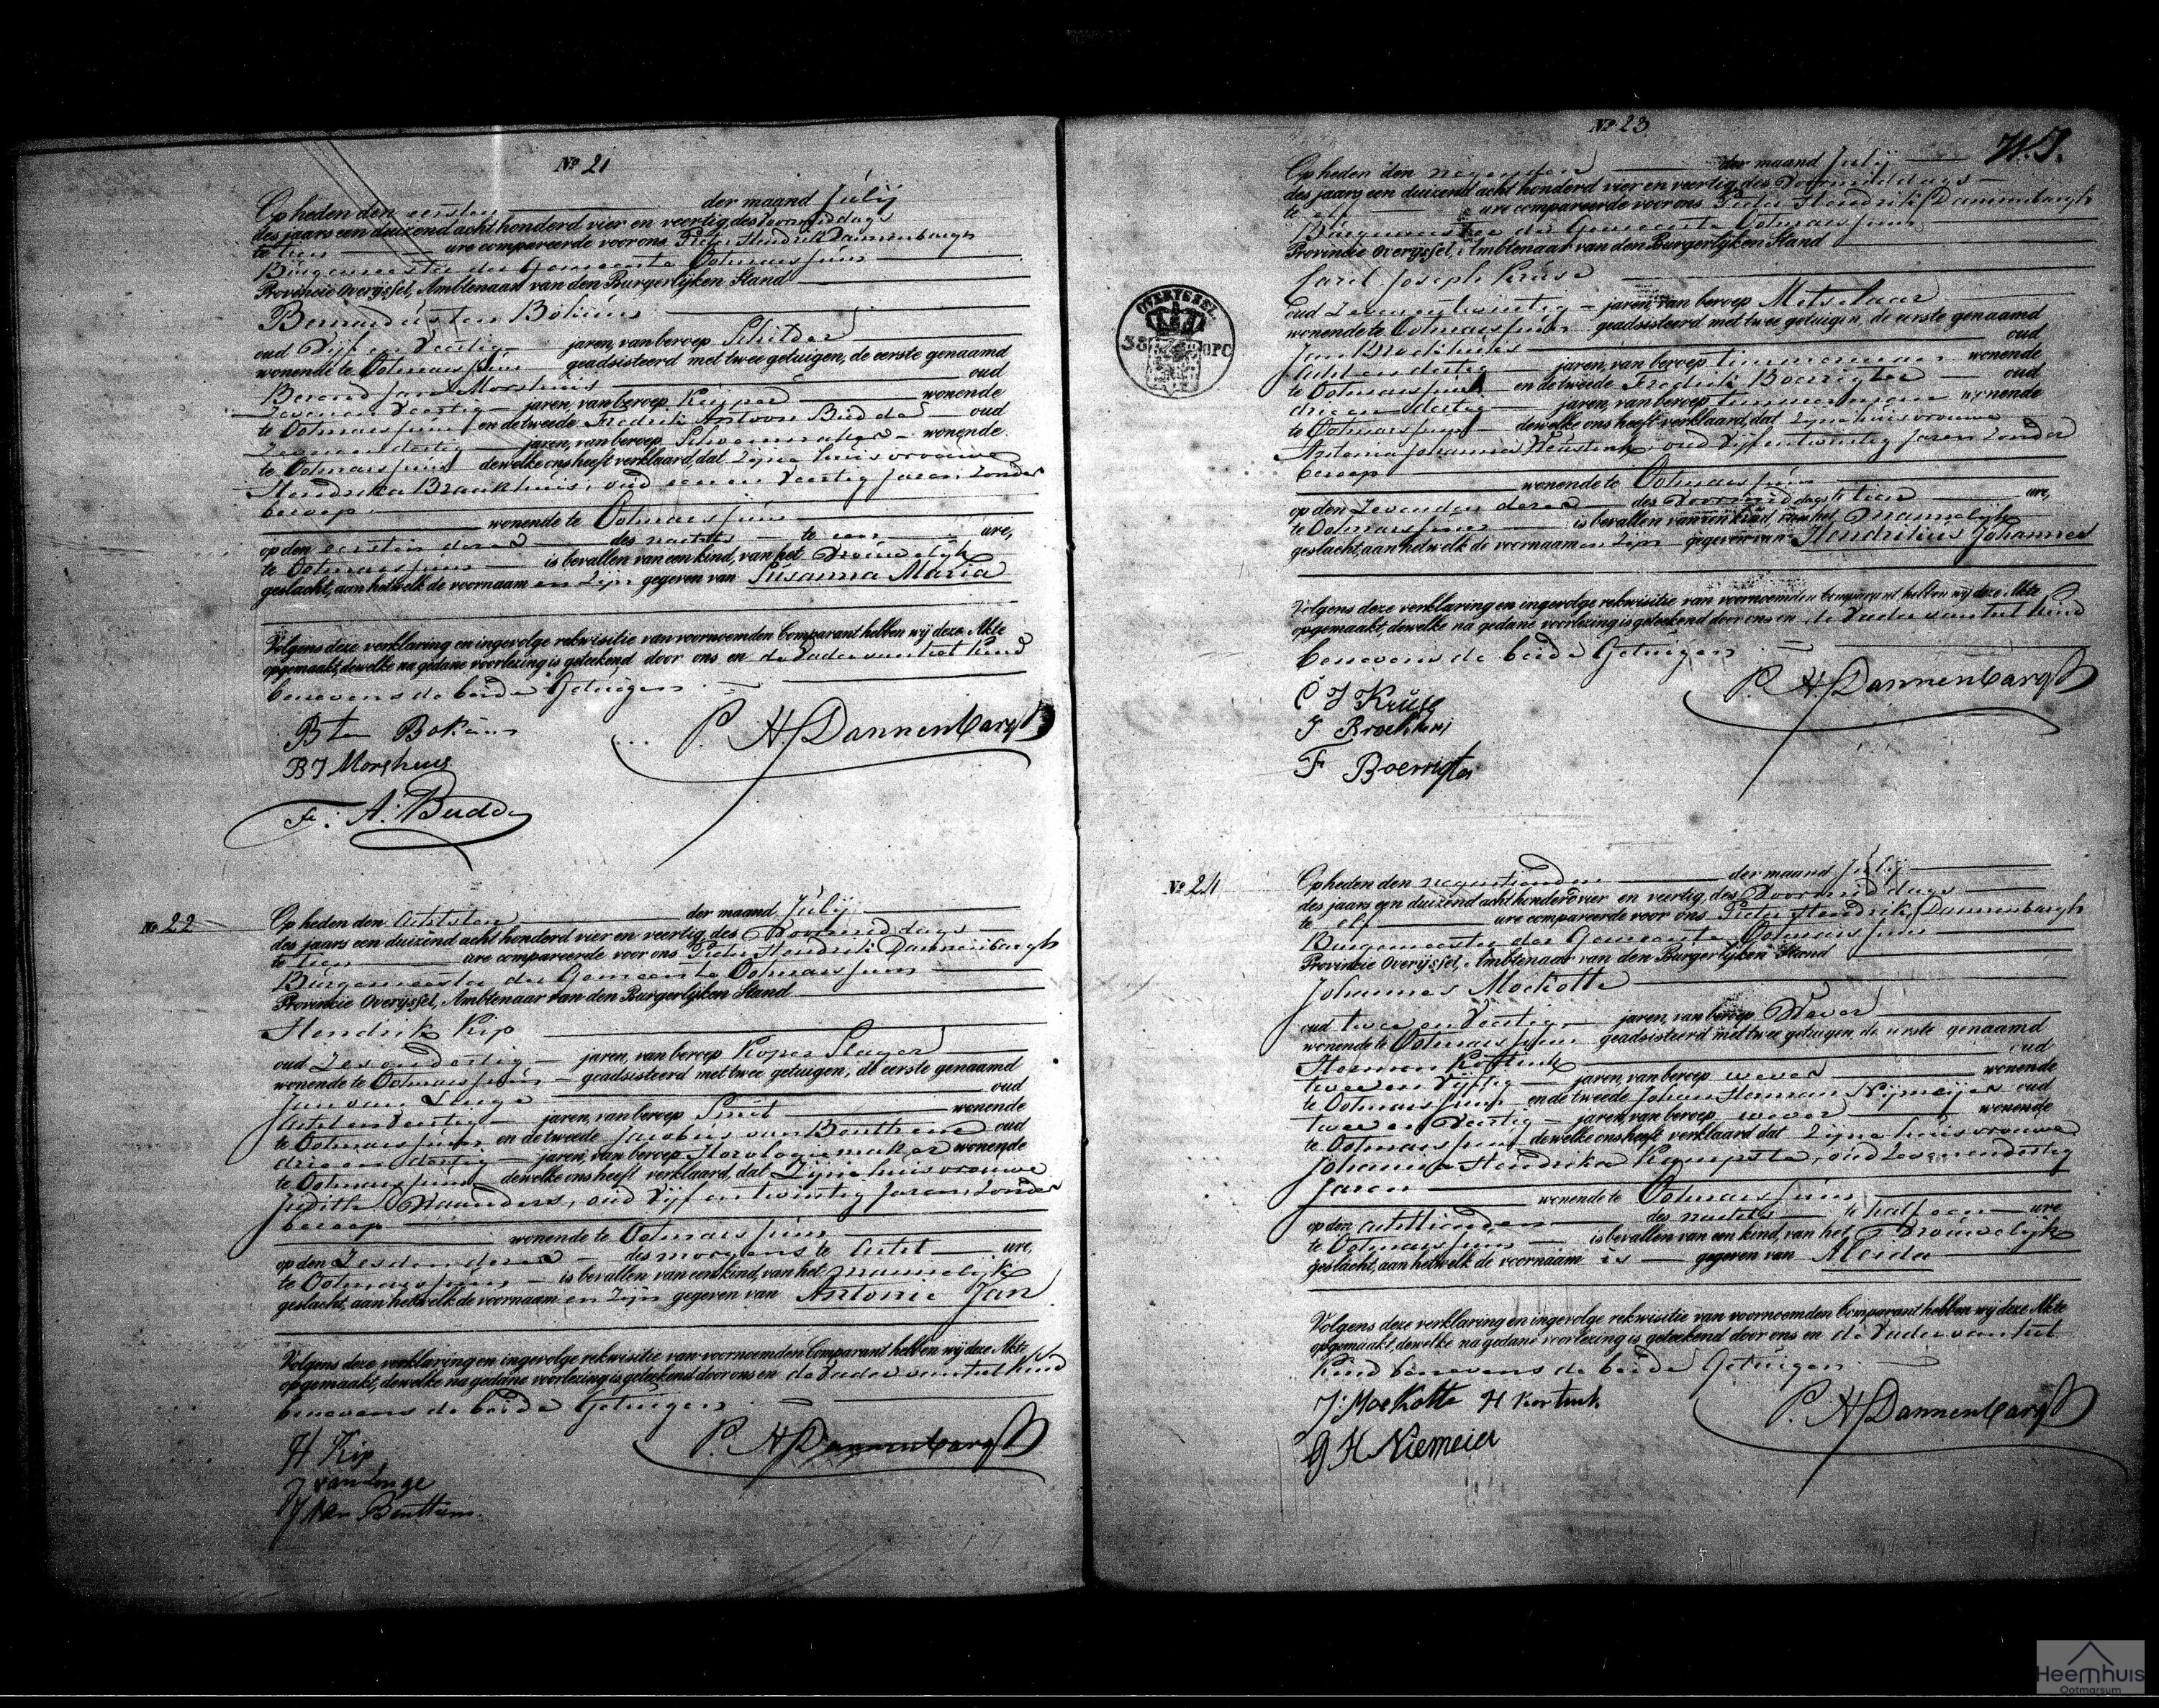 Nº 21
Op heden den eersten der maand Julij
des jaars een duizend acht honderd vier en veertig, des Voormiddags
te tien ure compareerde voor ons Pieter Hendrik Dannenbargh
Burgemeester der Gemeente Ootmarssum
Provincie Overijssel, Ambtenaar van den Burgerlijken Stand
Bernardus ten Bokum
oud Vijf en Veertig jaren, van beroep Schilder
wonende te Ootmarssum geadsisteerd met twee getuigen, de eerste genaamd
Berend Jan Morshuis oud
Zeven en Veertig jaren, van beroep Kuiper wonende
te Ootmarssum en de tweede Fredrik Antoon Budde oud
Zeven en dertig jaren, van beroep Schoenmaker wonende
te Ootmarssum dewelke ons heeft verklaard, dat Zijne huisvrouwe
Hendrika Braakhuis, oud een en Veertig Jaren Zonder
beroep wonende te Ootmarssum
op den eersten dezer des nachts te een ure,
te Ootmarssum is bevallen van een kind, van het Vrouwelijk
geslacht, aan hetwelk de voornaam en Zijn gegeven van Susanna Maria
Volgens deze verklaring en ingevolge rekwisitie van voornoemden Comparant hebben wij deze Akte
opgemaakt, dewelke na gedane voorlezing is geteekend door ons en de Vader van het Kind
benevens de beide Getuigen
B ten Bokum P. H. Dannenbargh
B J Morshuis
F. A. Budde
Nº 22
Op heden den Achtsten der maand Julij
des jaars een duizend acht honderd vier en veertig, des Voormiddags
te tien ure compareerde voor ons Pieter Hendrik Dannenbargh
Burgemeester der Gemeente Ootmarssum
Provincie Overijssel, Ambtenaar van den Burgerlijken Stand
Hendrik Kip
oud Zes en dertig jaren, van beroep Koper Slager
wonende te Ootmarssum geadsisteerd met twee getuigen, de eerste genaamd
Jan van Linge oud
Acht en Veertig jaren, van beroep Smit wonende
te Ootmarssum en de tweede Jacobus van Benthem oud
drie en dertig jaren, van beroep Horologiemaker wonende
te Ootmarssum dewelke ons heeft verklaard, dat Zijne huisvrouwe
Judith Waanders, oud Vijf en twintig Jaren Zonder
beroep wonende te Ootmarssum
op den Zesden dezer des morgens te Acht ure,
te Ootmarssum is bevallen van een kind, van het mannelijk
geslacht, aan hetwelk de voornaam en Zijn gegeven van Antonie Jan
Volgens deze verklaring en ingevolge rekwisitie van voornoemden Comparant hebben wij deze Akte
opgemaakt, dewelke na gedane voorlezing is geteekend door ons en de Vader van het Kind
benevens de beide Getuigen
H Kip P. H. Dannenbargh
J van Linge
J van Benthem
Nº 23
Op heden den negensten der maand Julij
des jaars een duizend acht honderd vier en veertig, des Voormiddags
te elf ure compareerde voor ons Pieter Hendrik Dannenbargh
Burgemeester der Gemeente Ootmarssum
Provincie Overijssel, Ambtenaar van den Burgerlijken Stand
Carel Joseph Kruse
oud Zeven en twintig jaren, van beroep Metselaar
wonende te Ootmarssum geadsisteerd met twee getuigen, de eerste genaamd
Jan Broekhuis oud
Acht en dertig jaren, van beroep timmerman wonende
te Ootmarssum en de tweede Fredrik Boerrigter oud
drie en dertig jaren, van beroep timmerman wonende
te Ootmarssum dewelke ons heeft verklaard, dat Zijne huisvrouwe
Antonia Johanna Heustink oud Vijf en twintig Jaren Zonder
beroep wonende te Ootmarssum
op den Zevenden dezer des Voormiddags te tien ure,
te Ootmarssum is bevallen van een kind, van het Mannelijk
geslacht, aan hetwelk de voornaam en Zijn gegeven van Hendrikus Johannes
Volgens deze verklaring en ingevolge rekwisitie van voornoemden Comparant hebben wij deze Akte
opgemaakt, dewelke na gedane voorlezing is geteekend door ons en de Vader van het Kind
benevens de beide Getuigen
C J Kruse P. H. Dannenbargh
J Broekhuis
F Boerrigter
OVERYSSEL
38 OPC
Nº 24
Op heden den negentienden der maand Julij
des jaars een duizend acht honderd vier en veertig, des Voormiddags
te elf ure compareerde voor ons Pieter Hendrik Dannenbargh
Burgemeester der Gemeente Ootmarssum
Provincie Overijssel, Ambtenaar van den Burgerlijken Stand
Johannes Mockotte
oud twee en Veertig jaren, van beroep Wever
wonende te Ootmarssum geadsisteerd met twee getuigen, de eerste genaamd
Herman Kortink oud
twee en Vijftig jaren, van beroep wever wonende
te Ootmarssum en de tweede Johan Herman Nijmeijer oud
twee en Veertig jaren, van beroep wever wonende
te Ootmarssum dewelke ons heeft verklaard dat Zijne huisvrouwe
Johanna Hendrika Kampste, oud Zeven en dertig
Jaren wonende te Ootmarssum
op den achttienden des nachts te half een ure
te Ootmarssum is bevallen van een kind, van het Vrouwelijk
geslacht, aan hetwelk de voornaam is gegeven van Aleida
Volgens deze verklaring en ingevolge rekwisitie van voornoemden Comparant hebben wij deze Akte
opgemaakt, dewelke na gedane voorlezing is geteekend door ons en de Vader van het
Kind benevens de beide Getuigen
J. Mockotte H Kortink P. H. Dannenbargh
G H Niemeier
Heemhuis
Ootmarsum